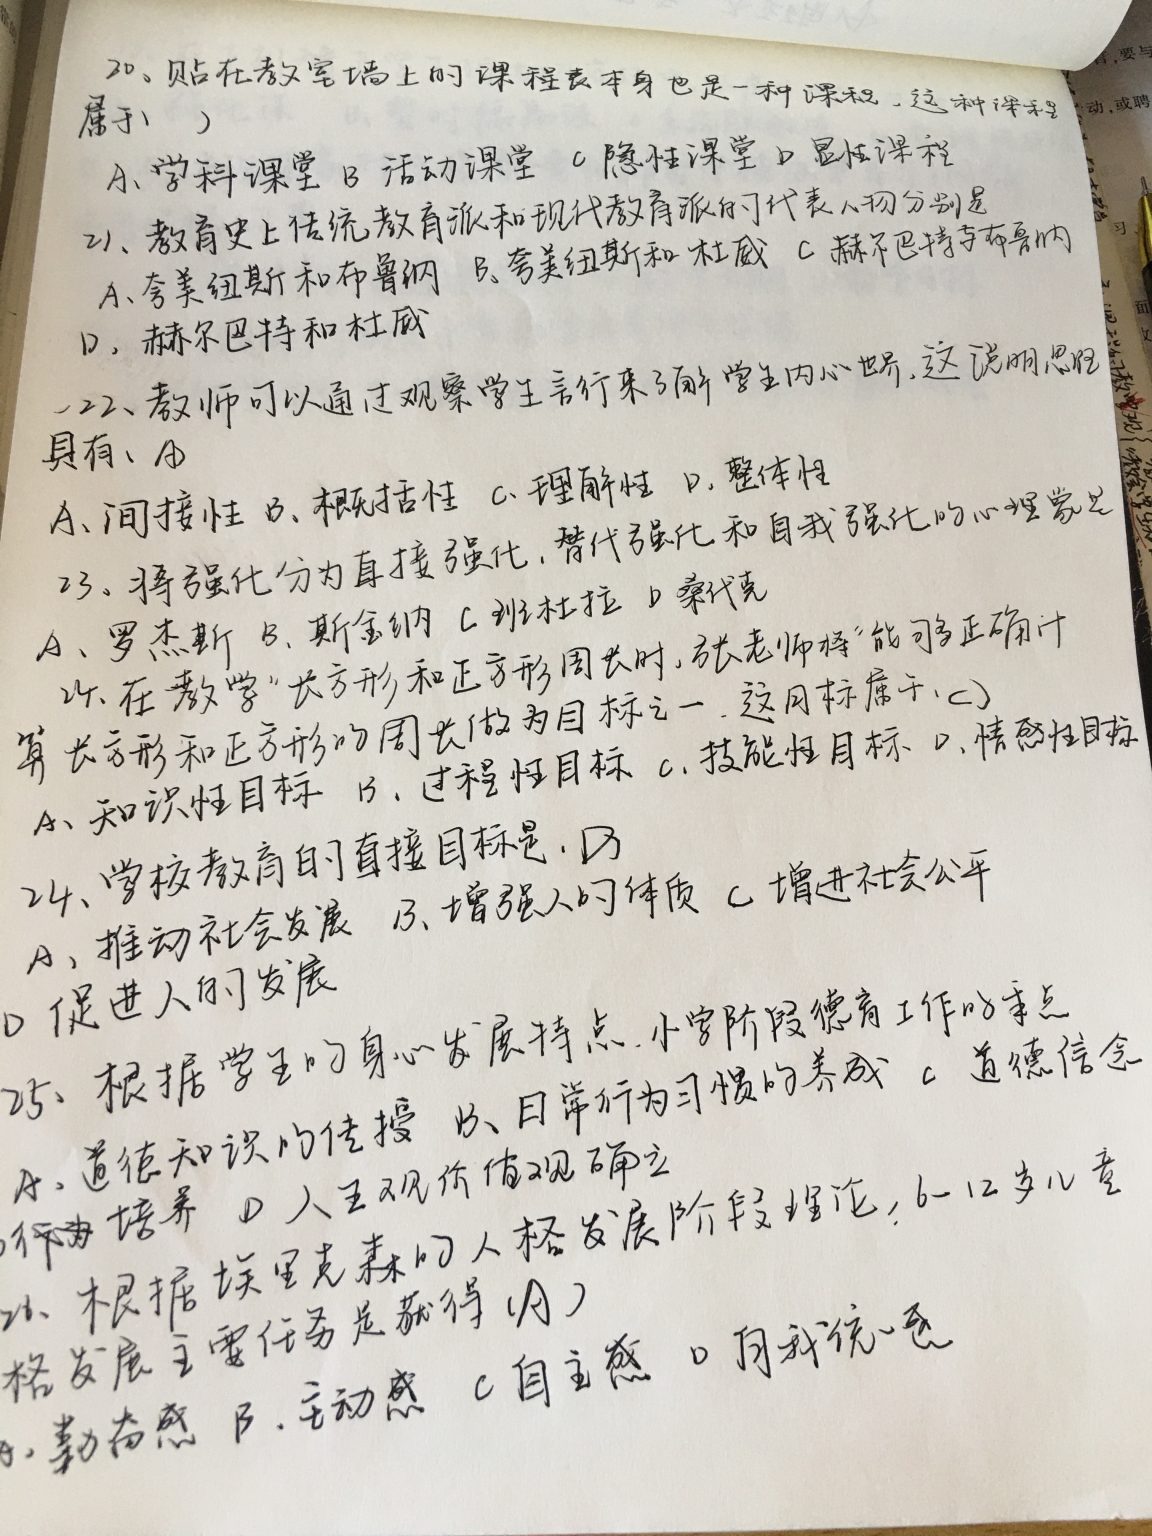 20、贴在教室墙上的课程表本身也是一种课程,这种课程
属于( )
A、学科课堂 B 活动课堂 C 隐性课堂 D 显性课程
21、教育史上传统教育派和现代教育派的代表人物分别是
A、夸美纽斯和布鲁纳 B、夸美纽斯和杜威 C 赫尔巴特与布鲁纳
D、赫尔巴特和杜威
22、教师可以通过观察学生言行来了解学生内心世界,这说明思维
具有、A
A、间接性 B、概括性 C、理解性 D、整体性
23、将强化分为直接强化,替代强化和自我强化的心理象是
A、罗杰斯 B、斯金纳 C 班杜拉 D 桑代克
24、在教学“长方形和正方形周长时,张老师将“能够正确计
算长方形和正方形的周长做为目标之一,这目标属于(C)
A、知识性目标 B、过程性目标 C、技能性目标 D、情感性目标
24、学校教育的直接目标是、D
A、推动社会发展 B、增强人的体质 C 增进社会公平
D 促进人的发展
25、根据学生的身心发展特点,小学阶段德育工作的重点
A、道德知识的传授 B、日常行为习惯的养成 C 道德信念
行为培养 D 人生观价值观确立
26、根据埃里克森的人格发展阶段理论,6-12岁儿童
格发展主要任务是获得(A)
A、勤奋感 B、主动感 C 自主感 D 自我统一感